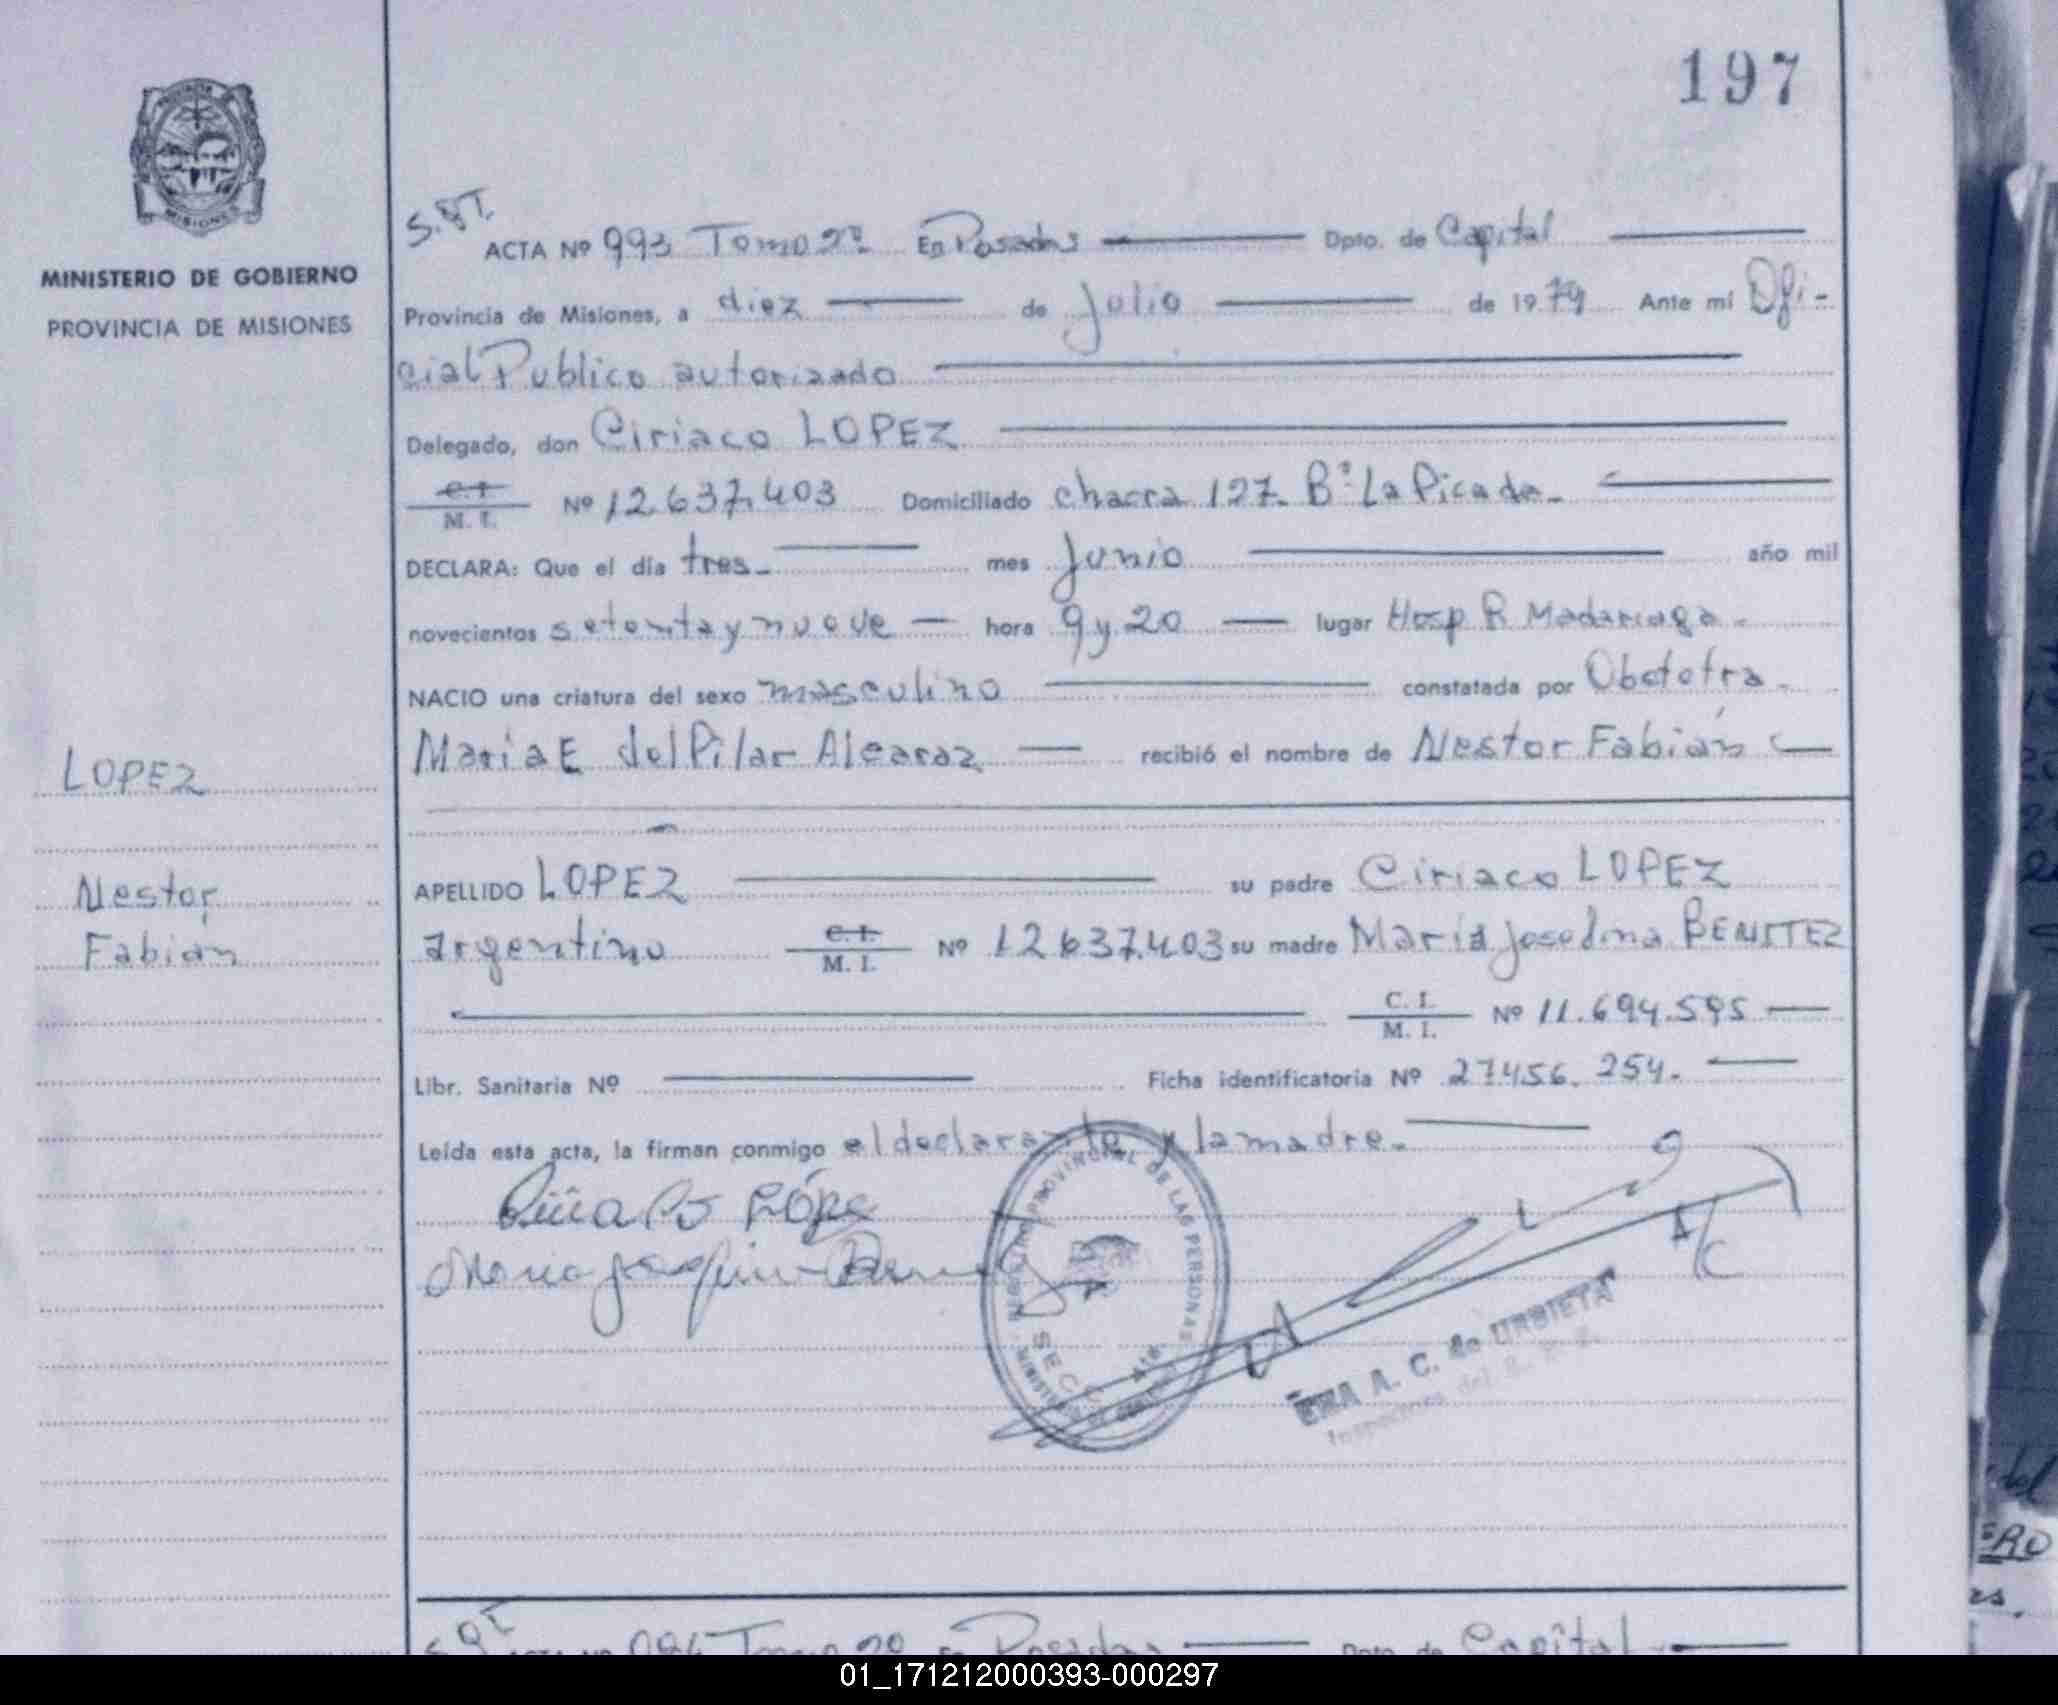 197
PROVINCIA DE
MISIONES
MINISTERIO DE GOBIERNO
PROVINCIA DE MISIONES
S.8T.
ACTA Nº 993 Tomo 2º En Posadas Dpto. de Capital
Provincia de Misiones, a diez de Julio de 1979 Ante mí Ofi-
cial Publico autorizado
Delegado, don Ciriaco LOPEZ
C.I.
M. I. Nº 12.637.403 Domiciliado chacra 127. Bº La Picada.
DECLARA: Que el día tres mes Junio año mil
novecientos setenta y nueve hora 9 y 20 lugar Hosp R Madariaga
NACIO una criatura del sexo masculino constatada por Obstetra
Maria E del Pilar Alcaraz recibió el nombre de Nestor Fabián
LOPEZ
Nestor
Fabián
APELLIDO LOPEZ su padre Ciriaco LOPEZ
argentino C.I.
M. I. Nº 12.637.403 su madre María BENITEZ
C. I.
M. I. Nº 11.694.595
Libr. Sanitaria Nº Ficha identificatoria Nº 27456.254.
Leída esta acta, la firman conmigo el declarante y la madre.
López
PROVINCIAL DE LAS PERSONAS
SECC
A/C
EMA A. C. de URBIETA
ACTA Nº 994 Tomo 2º En Posadas Dpto. de Capital
01_171212000393-000297